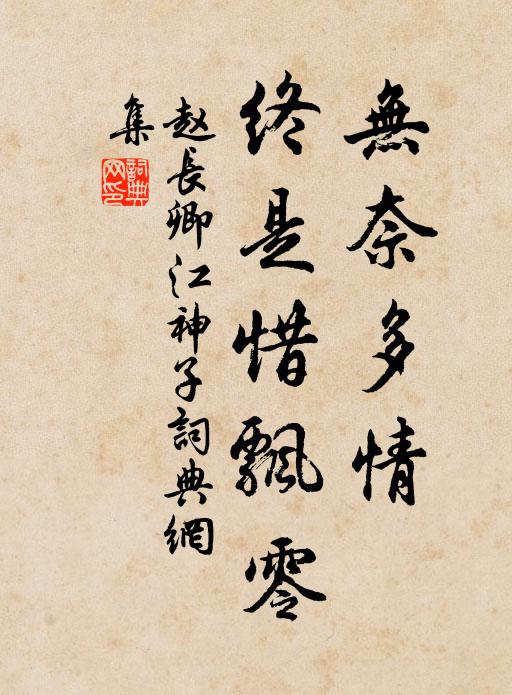 無奈多情
終是惜飄零
赵長卿江神子詞典網
集
詞典网印